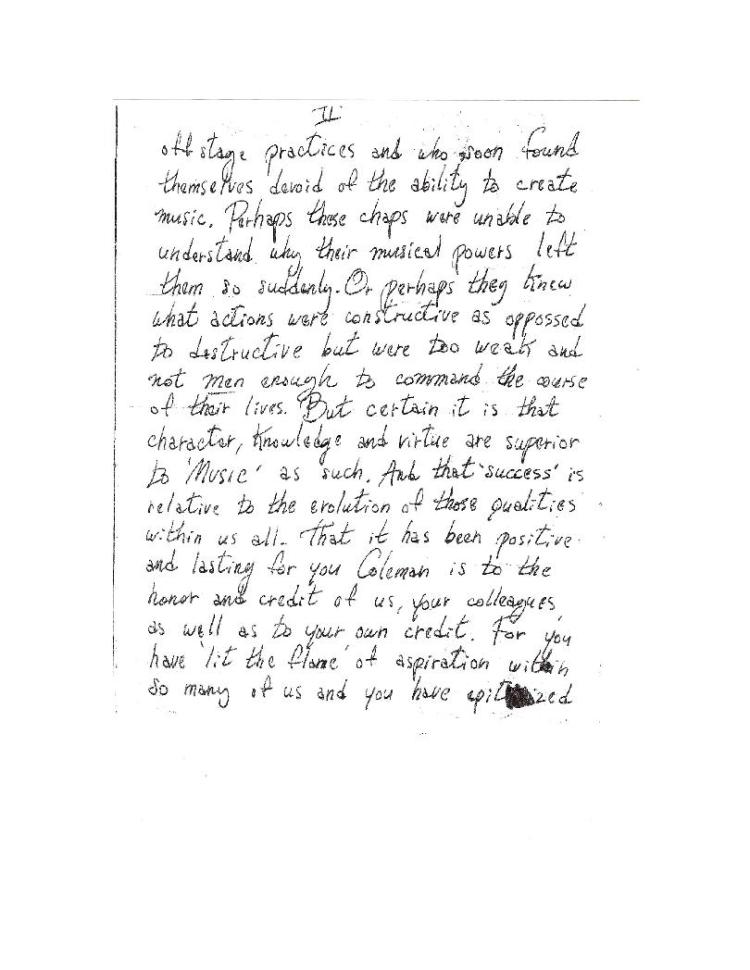 II
off stage practices and who soon found
themselves devoid of the ability to create
music. Perhaps these chaps were unable to
understand why their musical powers left
them so suddenly. Or perhaps they knew
what actions were constructive as oppossed
to destructive but were too weak and
not men enough to command the course
of their lives. But certain it is that
character, knowledge and virtue are superior
to 'Music' as such. And that 'success' is
relative to the evolution of those qualities
within us all. That it has been positive
and lasting for you Coleman is to the
honor and credit of us, your colleagues,
as well as to your own credit. For you
have 'lit the flame' of aspiration within
so many of us and you have